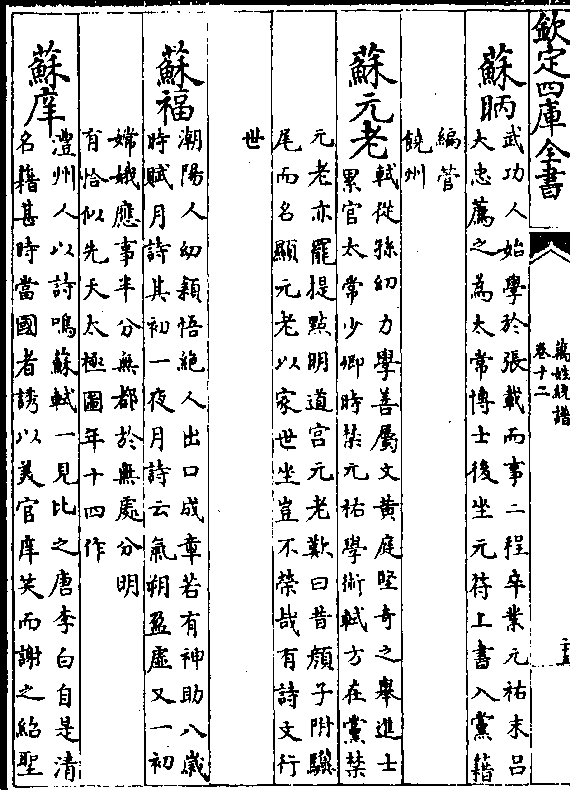 欽定四庫全書
萬姓統譜
卷十二
蘇昞
武功人始學於張載而事二程卒業元祐末呂
大忠薦之為太常博士後坐元符上書入黨籍
編管
饒州
蘇元老
軾從孫幼力學善屬文黃庭堅奇之舉進士
累官太常少卿時禁元祐學術軾方在黨禁
元老亦罷提點明道宮元老歎曰昔顔子附驥
尾而名顯元老以家世坐豈不榮哉有詩文行
世
蘇福
潮陽人幼穎悟絶人出口成章若有神助八歲
時賦月詩其初一夜月詩云氣朔盈虛又一初
嫦娥應事半分無都於無處分明
有恰似先天太極圖年十四作
蘇庠
澧州人以詩鳴蘇軾一見比之唐李白自是清
名籍甚時當國者誘以美官庠笑而謝之紹聖